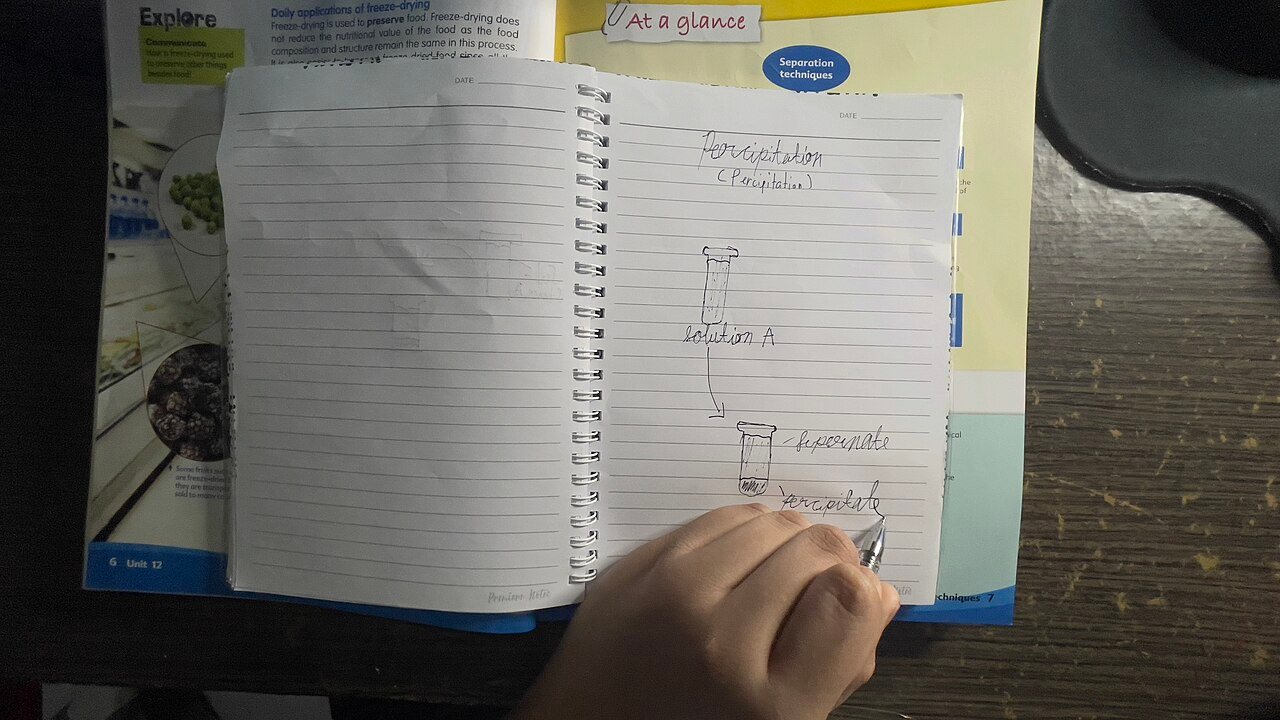 Explore
Communicate
How is freeze-drying used
to preserve other things
besides food?
Daily applications of freeze-drying
Freeze-drying is used to preserve food. Freeze-drying does
not reduce the nutritional value of the food as the food
composition and structure remain the same in this process.
At a glance
Separation
techniques
DATE
DATE
Percipitation
(Percipitation)
solution A
Supernate
Percipitate
Some fruits
are freeze-dried
they are
sold to many
6 Unit 12
Premium Notes
chniques 7